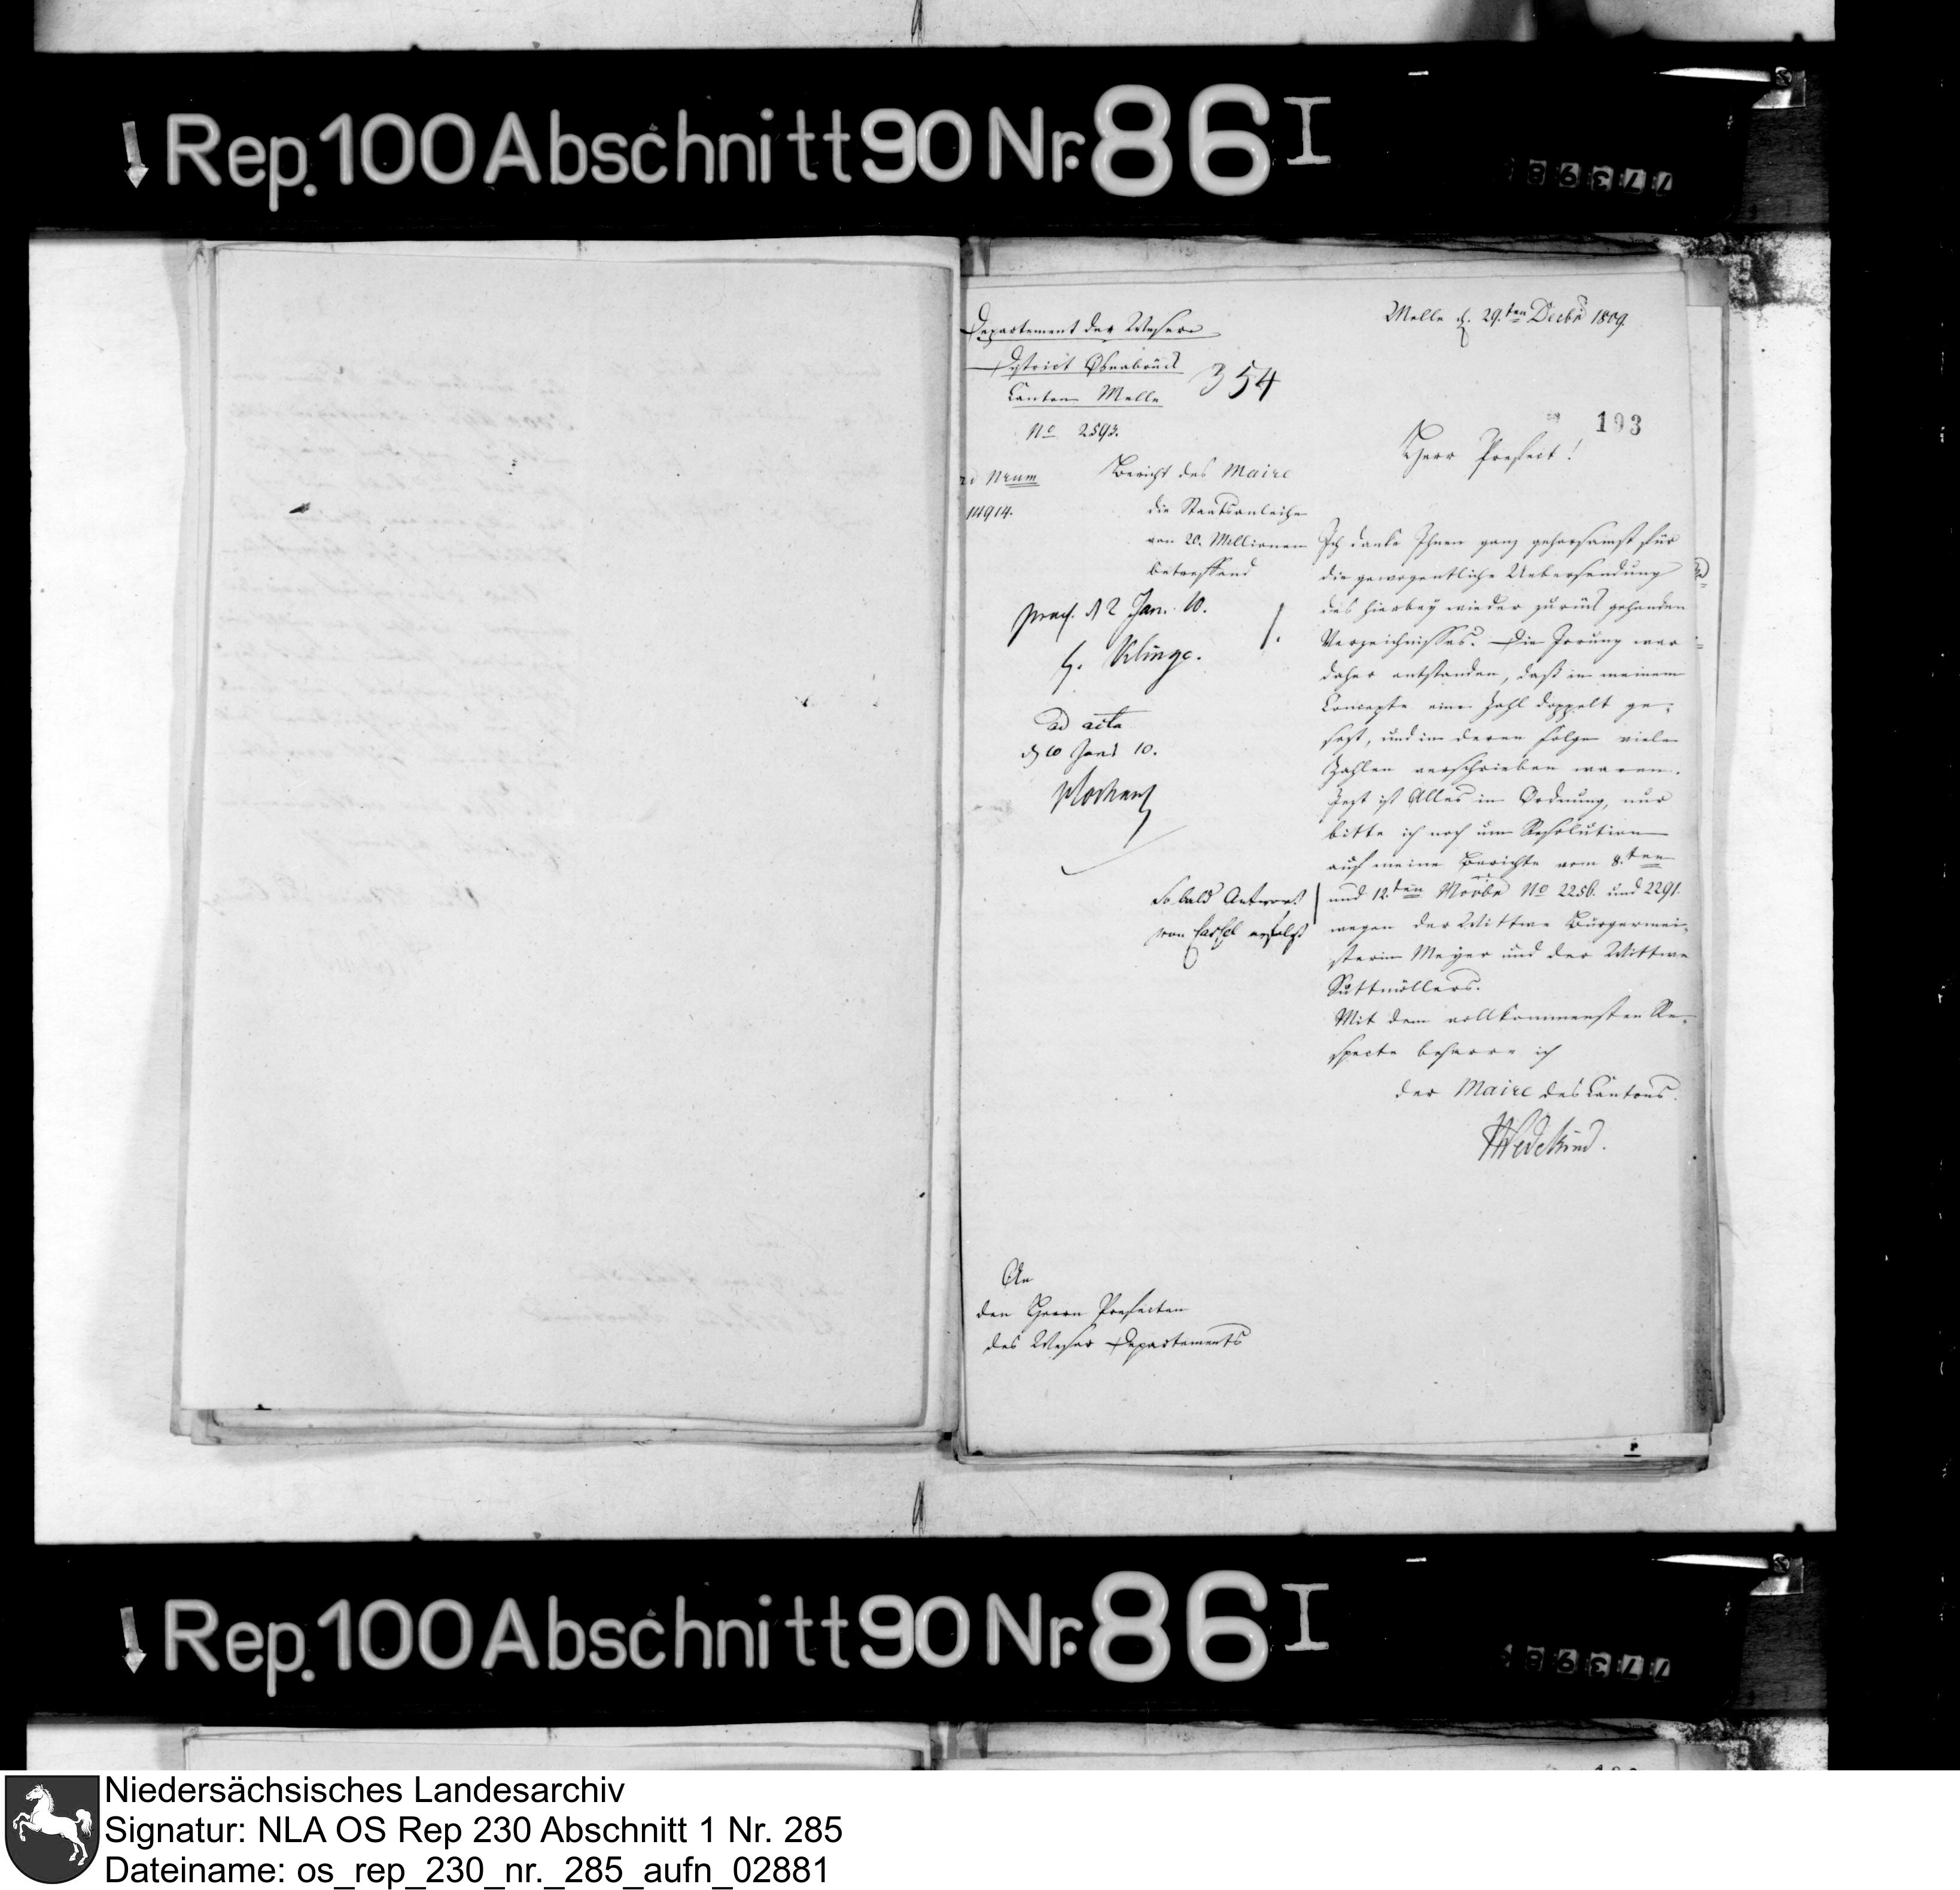 Rep. 100 Abschnitt 90 Nr. 86 I
77398
Departement der Weser
District Osnabrück
Canton Melle
354
No 2593.
Melle d. 29.ten Decbr 1809.
193
Herr Praefect!
ad Nrum
14914.
Bericht des Maire
die Staatsanleihe
von 20. Millionen
betreffend
praes. d 2 Jan. 10.
G. Klinge.
ad acta
d 10 Jan 10.
Ich danke Ihnen ganz gehorsamst für
die gewogentliche Uebersendung
des hierbey wieder zurück gehenden
Verzeichnisses. Die Irrung war
daher entstanden, daß in meinem
Concepte eine Zahl doppelt ge-
sezt, und in deren Folge viele
Zahlen verschrieben waren.
Jezt ist Alles in Ordnung, nur
bitte ich noch um Resolution
auf meine Berichte vom 8.ten
und 12.ten Novbr No 2256. und 2291.
wegen der Wittwe Bürgermei-
sterin Meyer und der Wittwe
Suttmöllers.
So bald Antwort
von Cassel erfolgt
Mit dem vollkommensten Re-
specte beharre ich
der Maire des Cantons.
Wedekind.
An
den Herrn Praefecten
des Weser Departements
Rep. 100 Abschnitt 90 Nr. 86 I
77398
Niedersächsisches Landesarchiv
Signatur: NLA OS Rep 230 Abschnitt 1 Nr. 285
Dateiname: os_rep_230_nr._285_aufn_02881